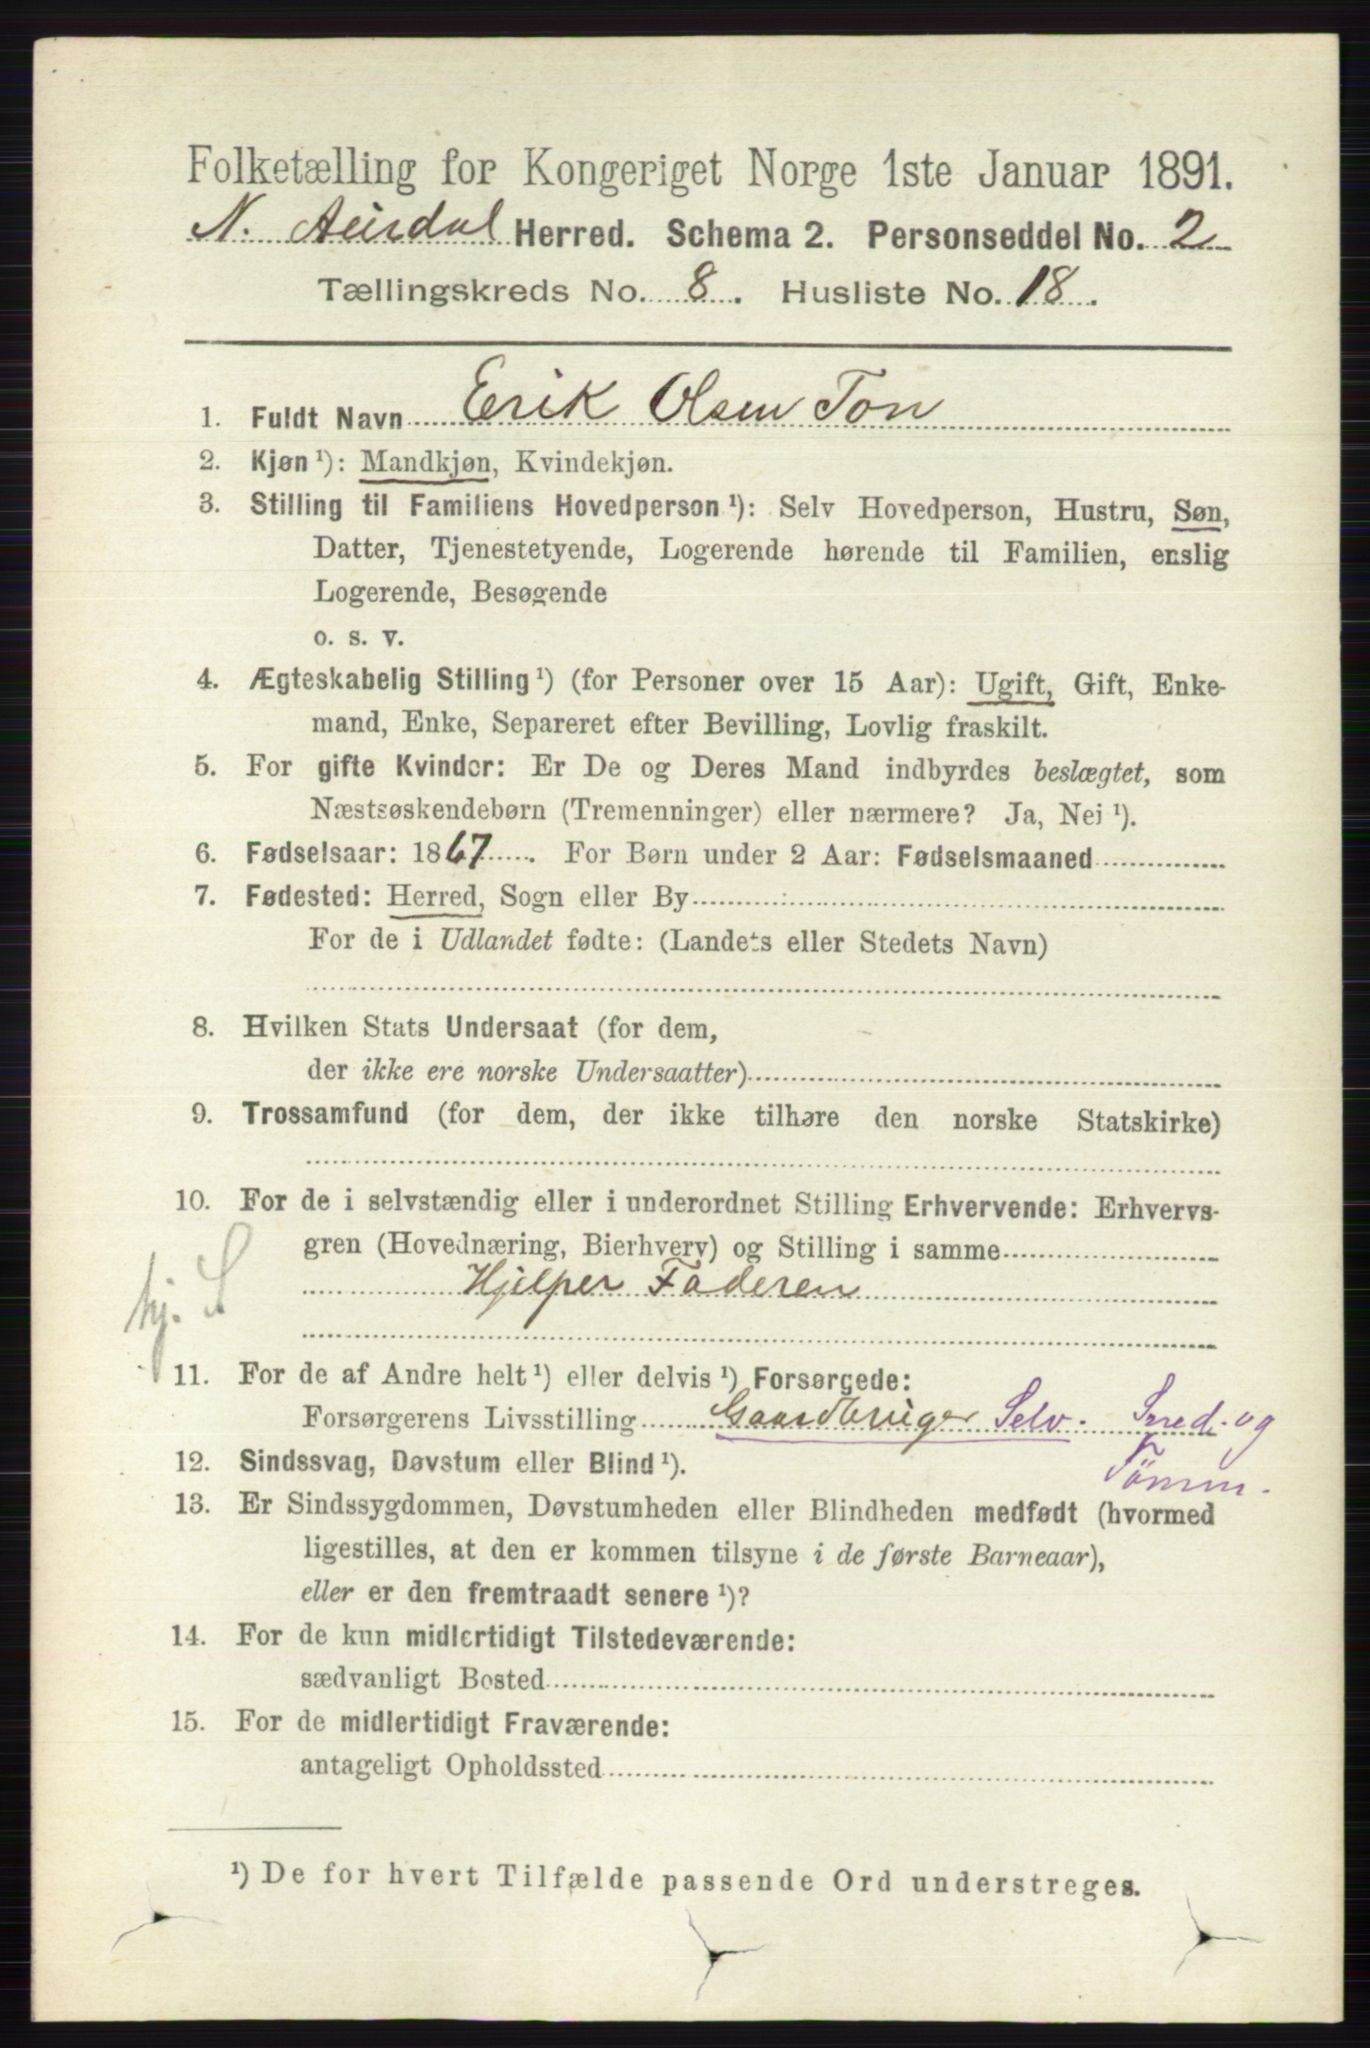 Folketælling for Kongeriget Norge 1ste Januar 1891.
N. Aurdal Herred. Schema 2. Personseddel No. 2
Tællingskreds No. 8. Husliste No. 18.
1. Fuldt Navn Erik Olsen Ton
2. Kjøn ¹): Mandkjøn, Kvindekjøn.
3. Stilling til Familiens Hovedperson ¹): Selv Hovedperson, Hustru, Søn,
Datter, Tjenestetyende, Logerende hørende til Familien, enslig
Logerende, Besøgende
o. s. v.
4. Ægteskabelig Stilling ¹) (for Personer over 15 Aar): Ugift, Gift, Enke-
mand, Enke, Separeret efter Bevilling, Lovlig fraskilt.
5. For gifte Kvinder: Er De og Deres Mand indbyrdes beslægtet, som
Næstsøskendebørn (Tremenninger) eller nærmere? Ja, Nei ¹).
6. Fødselsaar: 1867. For Børn under 2 Aar: Fødselsmaaned
7. Fødested: Herred, Sogn eller By
For de i Udlandet fødte: (Landets eller Stedets Navn)
8. Hvilken Stats Undersaat (for dem,
der ikke ere norske Undersaatter)
9. Trossamfund (for dem, der ikke tilhøre den norske Statskirke)
10. For de i selvstændig eller i underordnet Stilling Erhvervende: Erhvervs-
gren (Hovednæring, Bierhverv) og Stilling i samme
hj. S
Hjelper Faderen
11. For de af Andre helt ¹) eller delvis ¹) Forsørgede:
Forsørgerens Livsstilling Gaardbruger Selv. Smed. og
Tömm.
12. Sindssvag, Døvstum eller Blind ¹).
13. Er Sindssygdommen, Døvstumheden eller Blindheden medfødt (hvormed
ligestilles, at den er kommen tilsyne i de første Barneaar),
eller er den fremtraadt senere ¹)?
14. For de kun midlertidigt Tilstedeværende:
sædvanligt Bosted
15. For de midlertidigt Fraværende:
antageligt Opholdssted
¹) De for hvert Tilfælde passende Ord understreges.